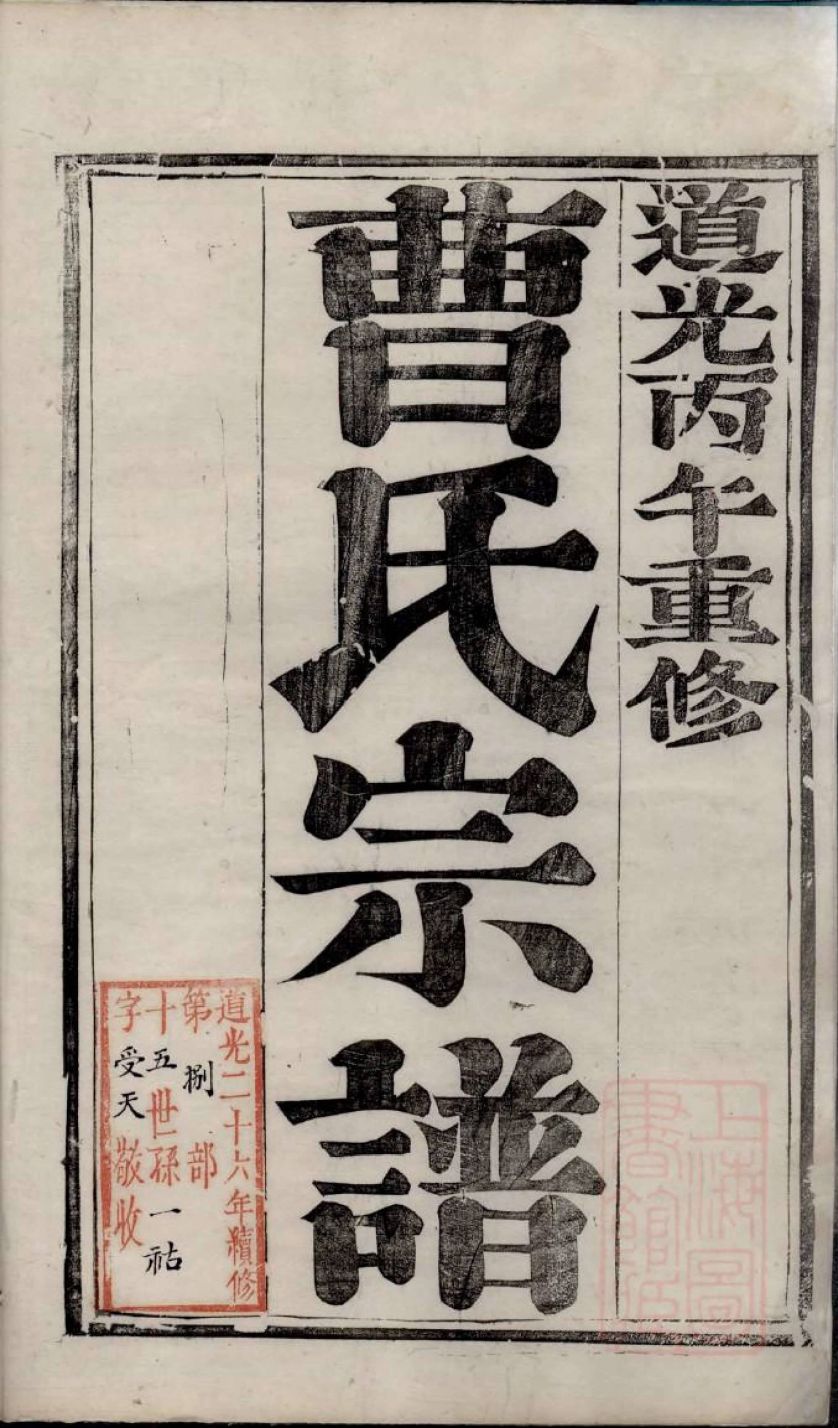 道光丙午重修
曹氏宗譜
道光二十六年續修
第捌部
十五世孫一祜
字受天敬收
上海圖
書館藏